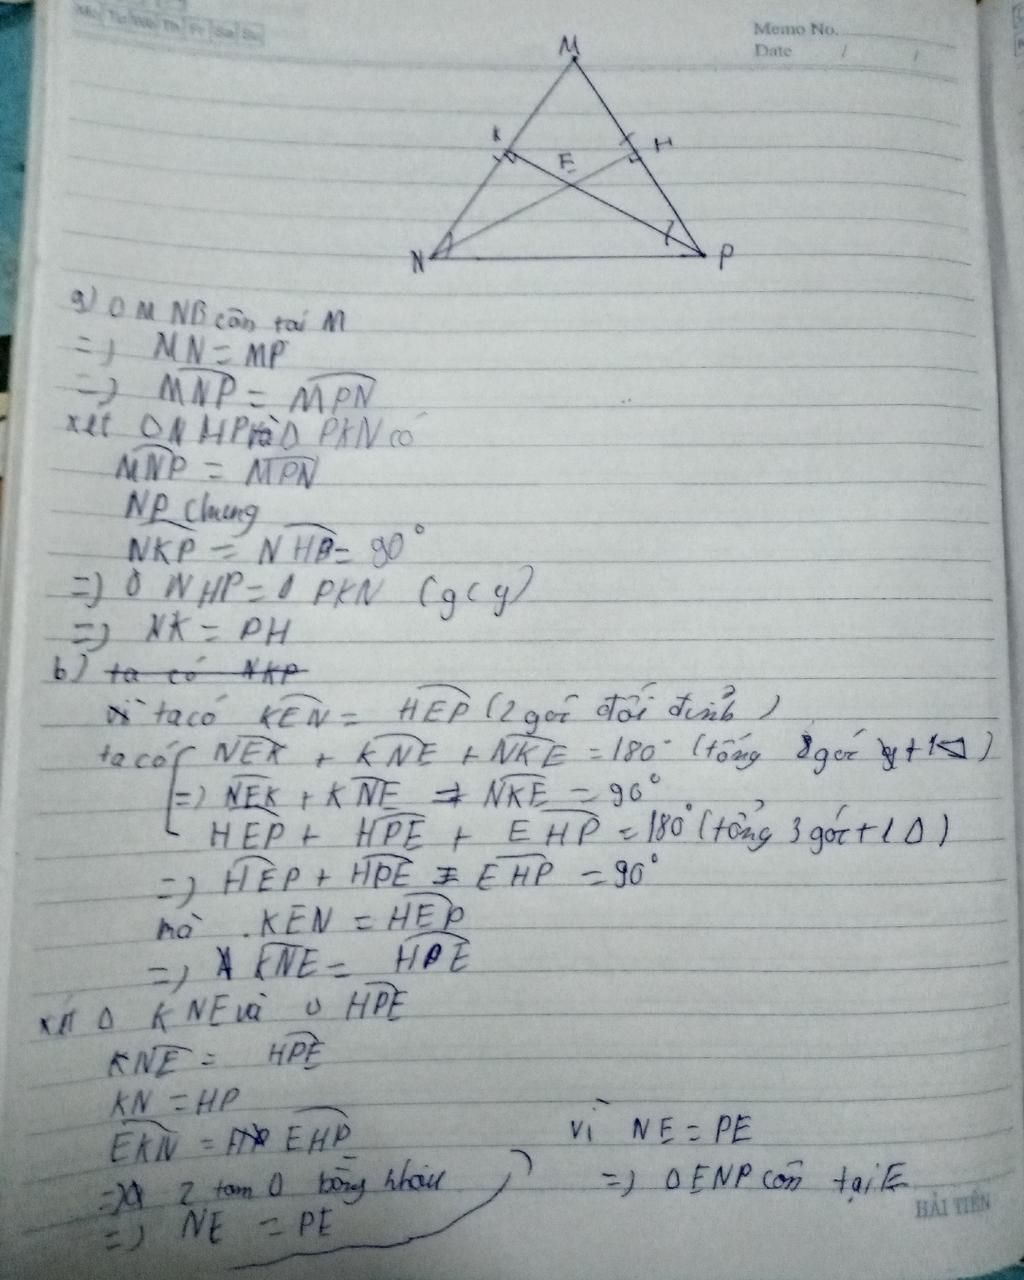 Mo Tu We Th Fr Sa Su
Memo No.
Date / /
M
K
E
H
N
P
a) Δ MNB cân tại M
=) MN = MP
=) MNP = MPN
xét Δ NHP và Δ PKN có
MNP = MPN
NP chung
NKP = NHB = 90°
=) Δ NHP = Δ PKN (gcg)
=) NK = PH
b) ta có NKP
vì ta có KEN = HEP (2 góc đối đỉnh)
ta có NEK + KNE + NKE = 180° (tổng 3 góc + 1Δ)
=) NEK + KNE = NKE = 90°
HEP + HPE + EHP = 180° (tổng 3 góc + 1 Δ)
=) HEP + HPE = EHP = 90°
mà KEN = HEP
=) KNE = HPE
xét Δ KNE và Δ HPE
KNE = HPE
KN = HP
EKN = EHP
=) 2 tam Δ bằng nhau
=) NE = PE
vì NE = PE
=) Δ ENP cân tại E
HẢI TIẾN